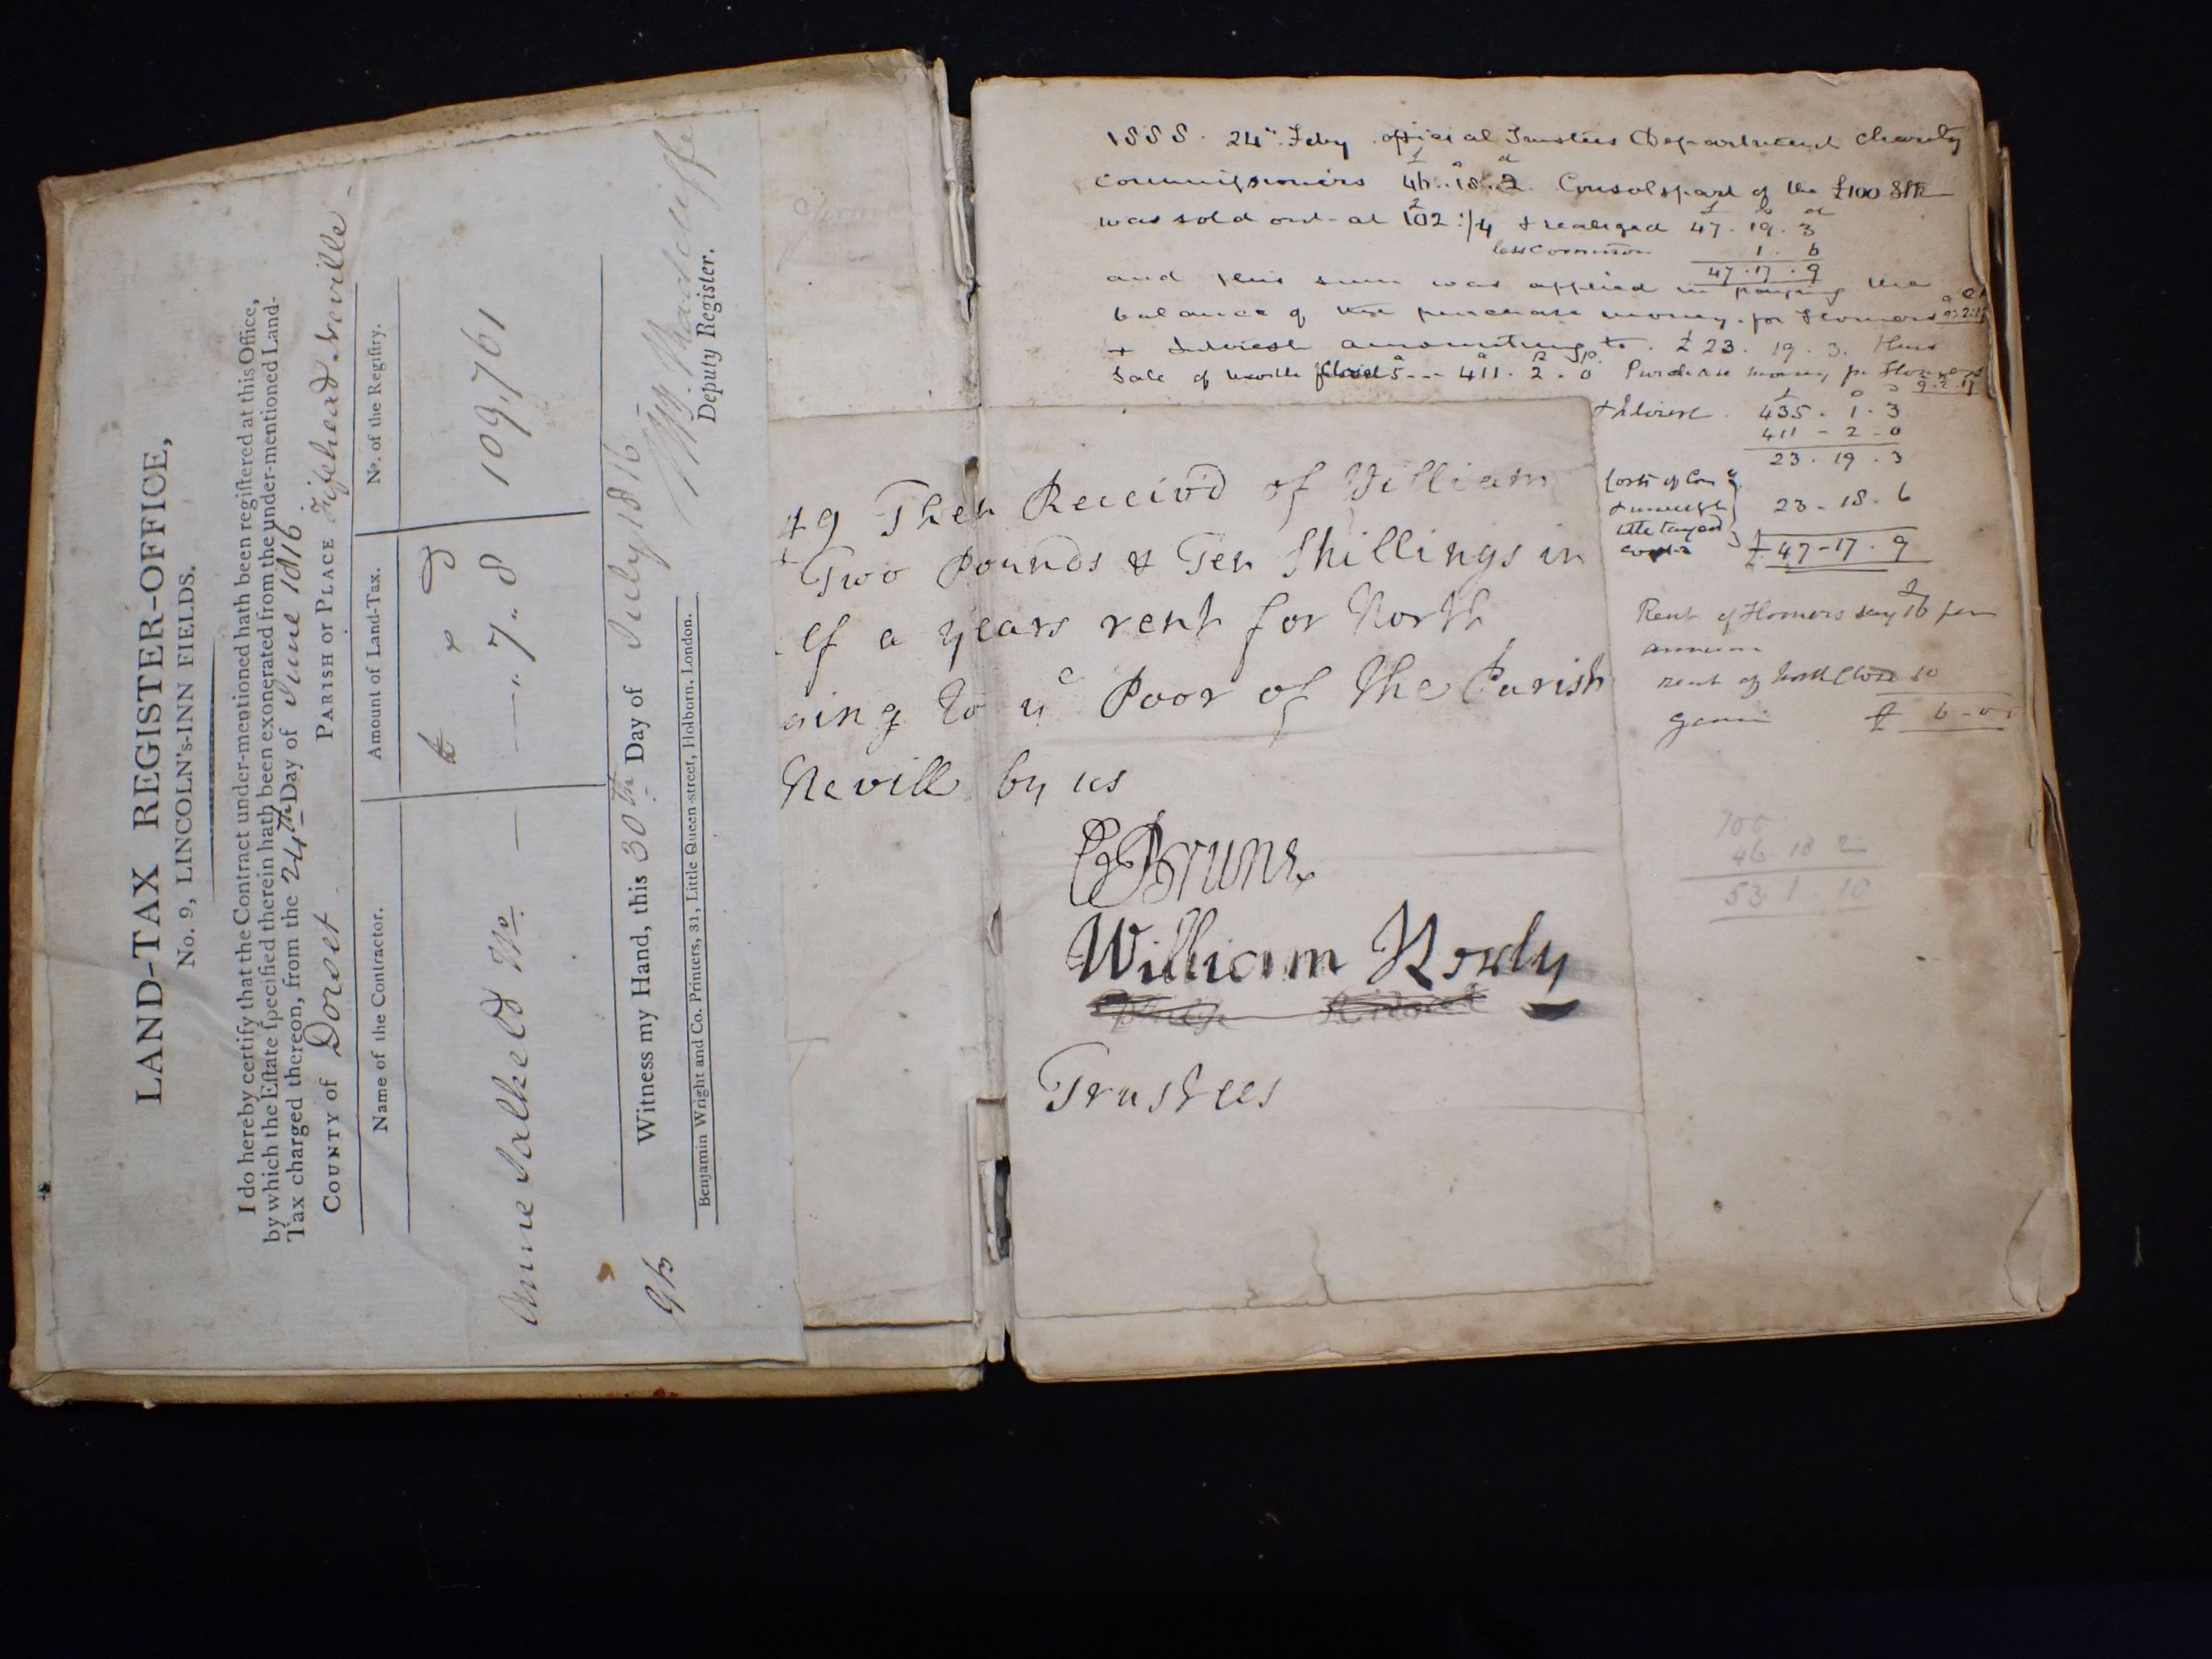 LAND-TAX REGISTER-OFFICE,
No. 9, LINCOLN's-INN FIELDS.
I do hereby certify that the Contract under-mentioned hath been regiſtered at this Office,
by which the Eſtate ſpecified therein hath been exonerated from the under-mentioned Land-
Tax charged thereon, from the 24th Day of June 1816
COUNTY of Dorset PARISH or PLACE Fifehead Neville
Name of the Contractor. Amount of Land-Tax. No. of the Regiſtry.
£ s d
Anne Salkeld Wo. — —" 7" 8 109,761
Witness my Hand, this 30th Day of July 1816
Deputy Register.
Benjamin Wright and Co. Printers, 31, Little Queen-street, Holborn, London.
1888. 24th Feby official Trustees Department Charity
Commissioners 46..18..2 Consols part of the £100 Stk
was sold out at 102 1/4 & realized 47. 19. 3
less Commion 1. 6
47.17.9
and this sum was applied in paying the
balance of the purchase money for Homers
& Interest amounting to £23. 19. 3. Thus
Sale of North Close 5-- 411. 2. 0 Purchase money for Homers
& Interest 435. 1. 3
411 - 2 - 0
23. 19. 3
Costs of
23 - 18. 6
£47-17. 9
Rent of Homers say £16 per
annum
rent of North Close 10
gain £ 6-0
49 Then Receiv'd of William
Two Pounds & Ten Shillings in
lf a years rent for North
ning to ye Poor of the Parish
Nevill by us
C Brune
William Rowly
Trustees
100
46 18 2
53. 1. 10